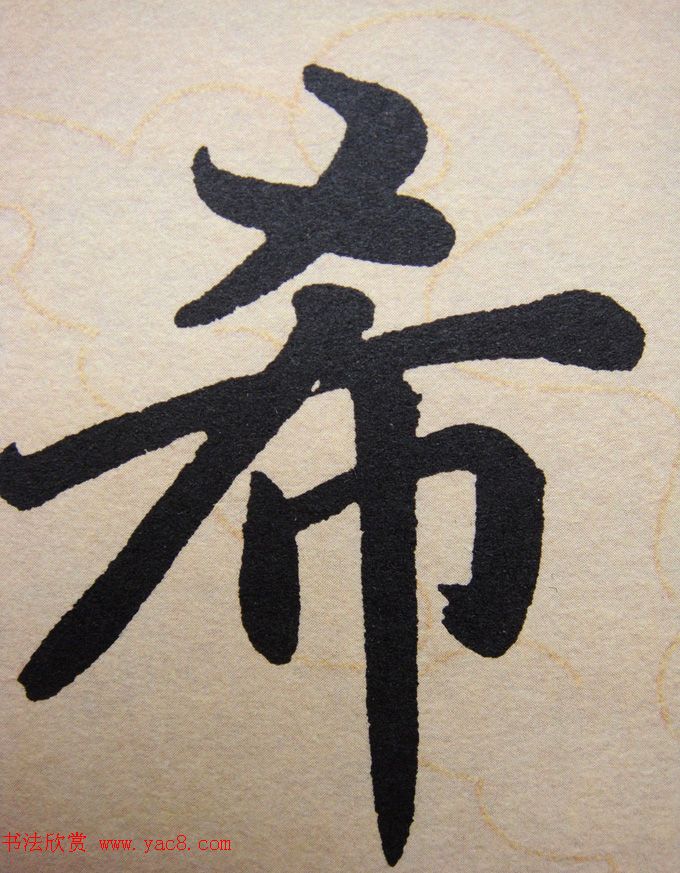 希
书法欣赏 www.yac8.com